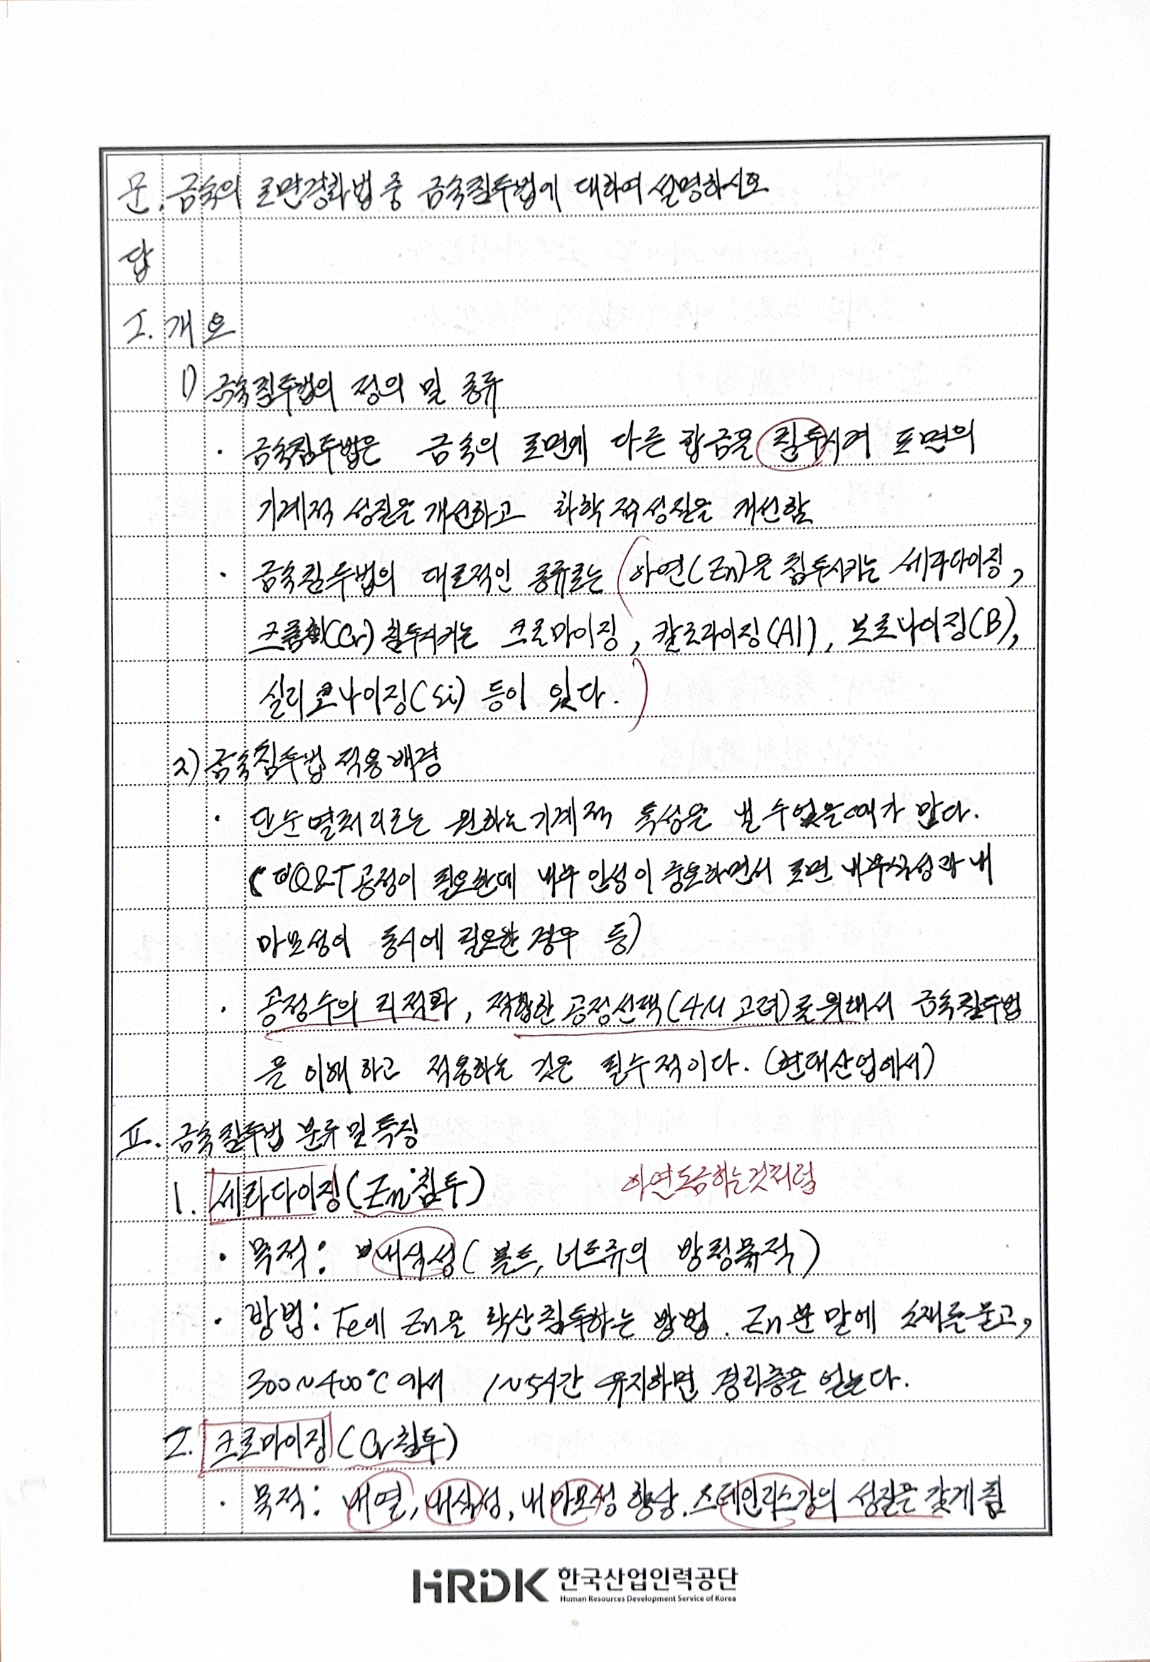 문. 금속의 표면경화법 중 금속침투법에 대하여 설명하시오
답
I. 개요
1) 금속침투법의 정의 및 종류
· 금속침투법은 금속의 표면에 다른 합금을 침투시켜 표면의
기계적 성질을 개선하고 화학적성질을 개선함
· 금속침투법의 대표적인 종류로는 (아연(Zn)을 침투시키는 세라다이징,
크롬(Cr)침투시키는 크로마이징, 칼로라이징(Al), 보로나이징(B),
실리코나이징(Si) 등이 있다.)
2) 금속침투법 적용배경
· 단순열처리로는 원하는 기계적 특성을 낼 수 없을때가 많다.
Q&T공정이 필요한데 내부 인성이 중요하면서 표면 내부식성과 내
마모성이 동시에 필요한 경우 등)
· 공정수의 최적화, 적합한 공정선택(4M 고려)를 위해서 금속침투법
을 이해하고 적용하는 것은 필수적이다. (현대산업에서)
II. 금속침투법 분류 및 특징
1. 세라다이징(Zn 침투) 아연도금하는것처럼
· 목적: 내식성(볼트, 너트류의 방청목적)
· 방법: Fe에 Zn을 확산침투하는 방법. Zn분말에 소재를 묻고,
300~400℃에서 1~5시간 유지하면 경화층을 얻는다.
2. 크로마이징(Cr침투)
· 목적: 내열, 내식성, 내마모성 향상. 스테인리스강의 성질을 갖게 됨
HRDK 한국산업인력공단
Human Resources Development Service of Korea